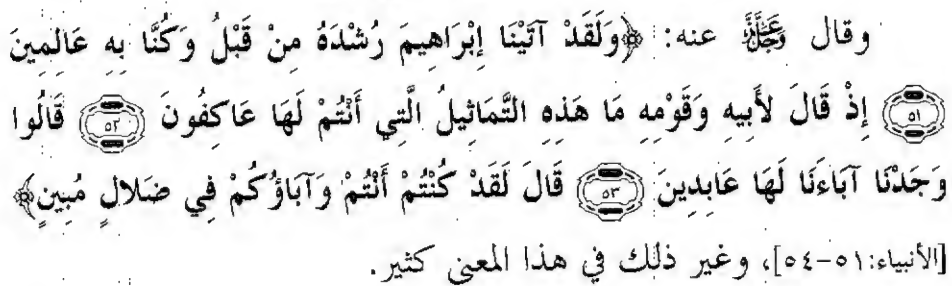 وقال ﷻ عنه: ﴿وَلَقَدْ آتَيْنَا إِبْرَاهِيمَ رُشْدَهُ مِنْ قَبْلُ وَكُنَّا بِهِ عَالِمِينَ
(٥١) إِذْ قَالَ لأَبِيهِ وَقَوْمِهِ مَا هَذِهِ التَّمَاثِيلُ الَّتِي أَنْتُمْ لَهَا عَاكِفُونَ (٥٢) قَالُوا
وَجَدْنَا آبَاءَنَا لَهَا عَابِدِينَ (٥٣) قَالَ لَقَدْ كُنْتُمْ أَنْتُمْ وَآبَاؤُكُمْ فِي ضَلالٍ مُبِينٍ﴾
[الأنبياء:٥١-٥٤]، وغير ذلك في هذا المعنى كثير.